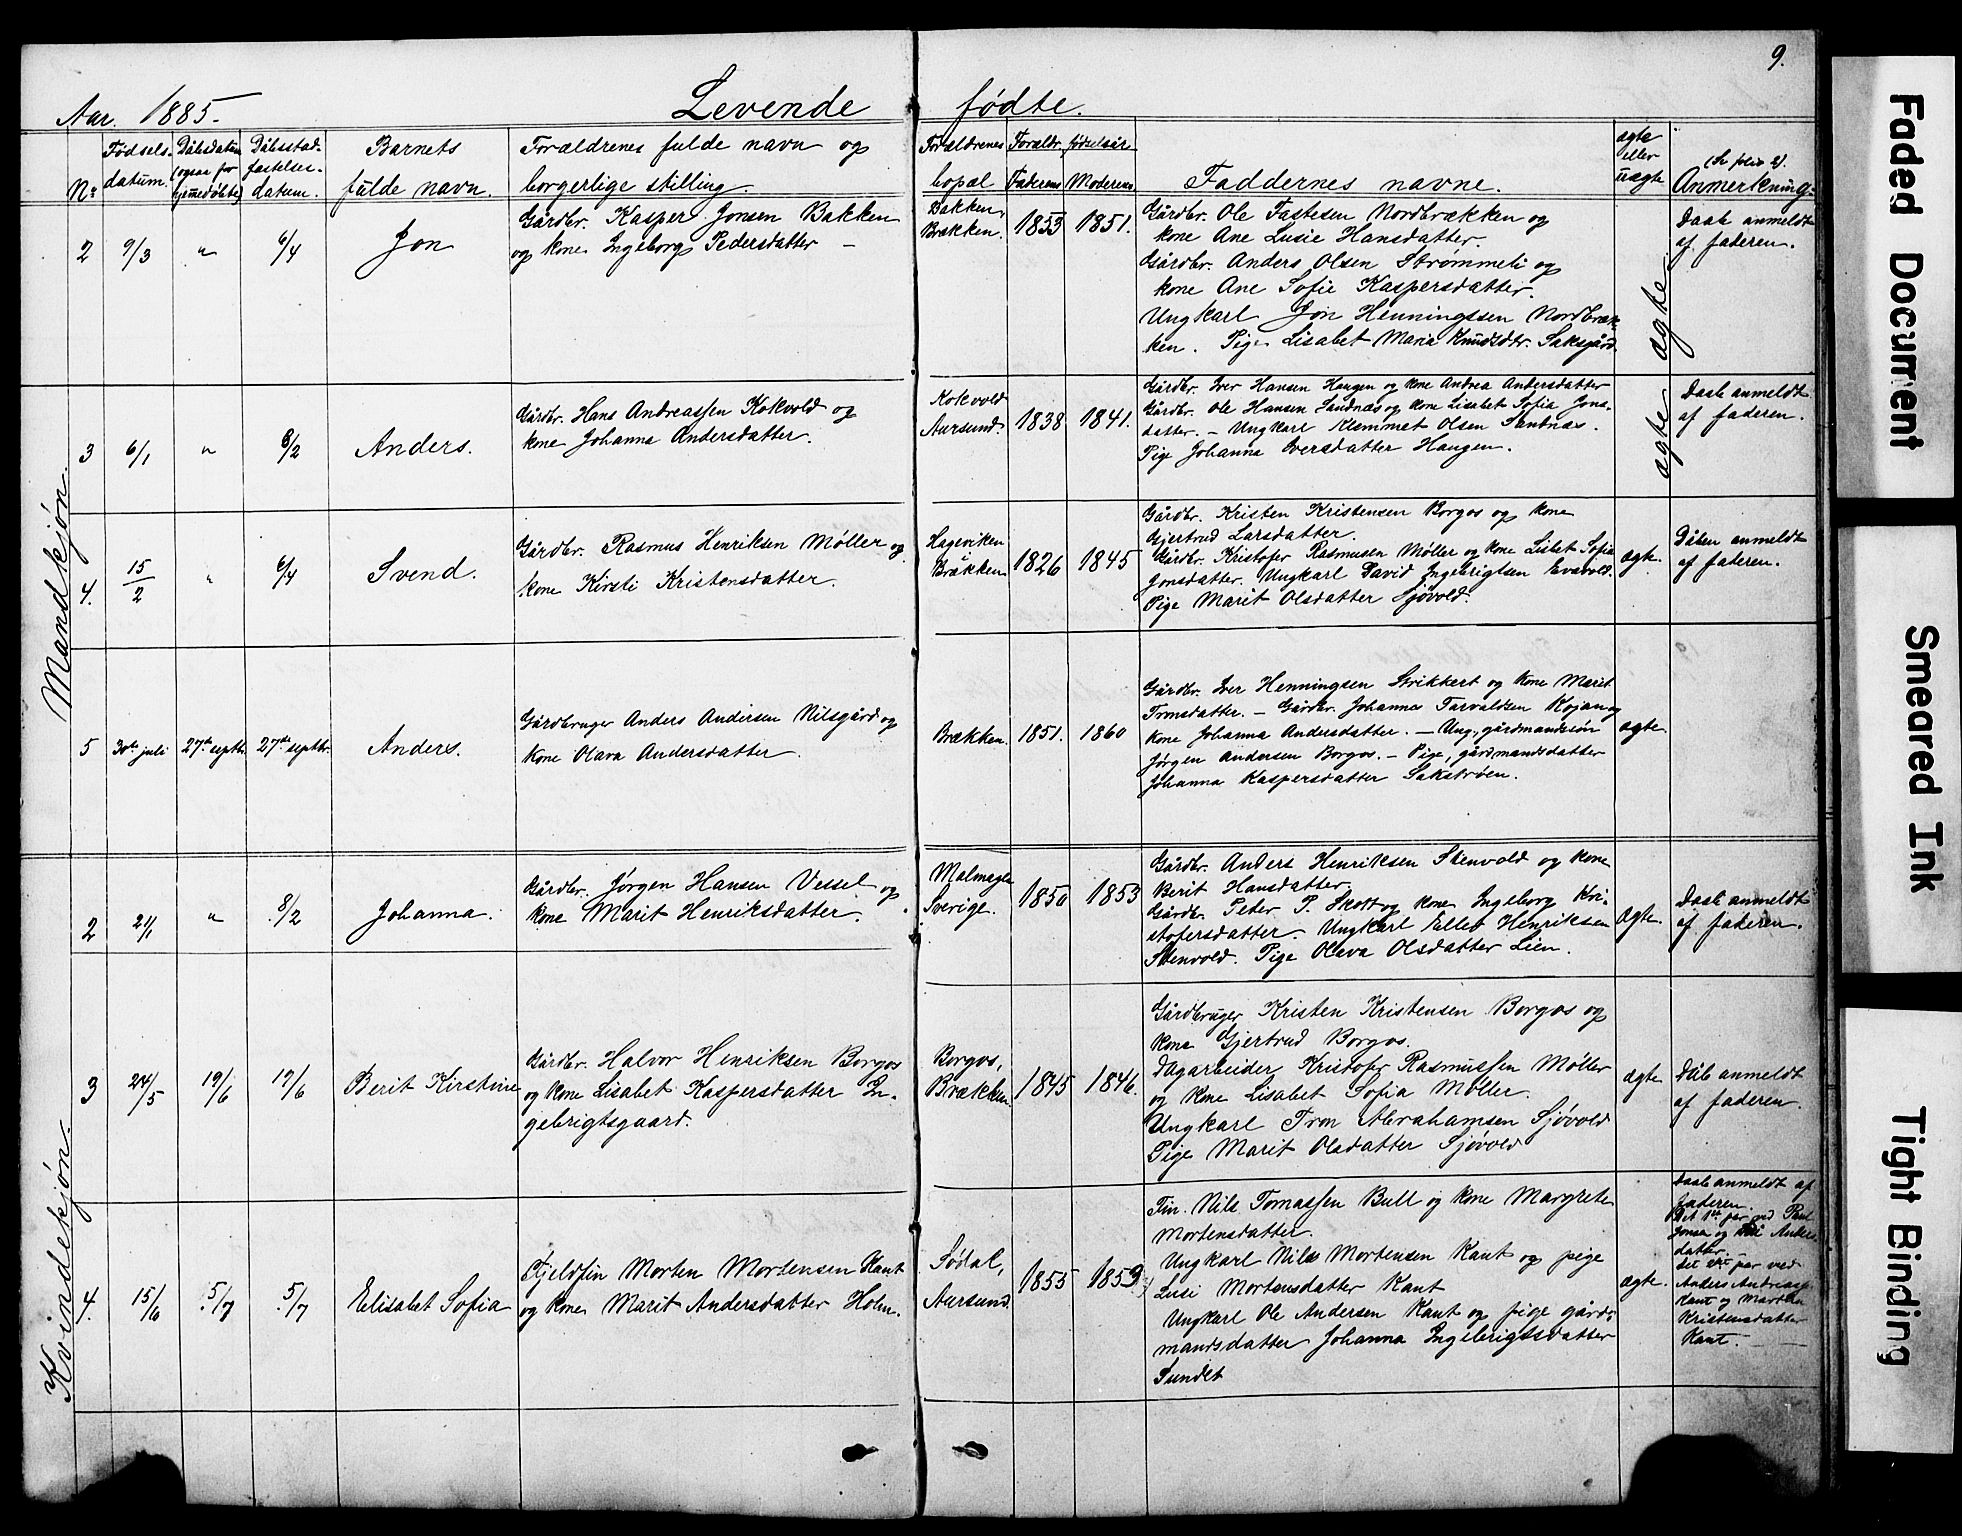 9.
Aar. 1885. Levende fødte.
Nr.
Fødsels-
datum.
Dåbsdatum
(ogsaa for
hjemmedøbte)
Dåbsstad-
fæstelses-
datum.
Barnets
fulde navn.
Forældrenes fulde navn og
borgerlige stilling.
Forældrenes
bopæl
Forældr. fødselsår.
Faderens Moderens
Faddernes navne.
ægte
eller
uægte
(Se folio 2).
Anmerkning.
Mandkjøn.
2 9/3 " 6/4 Jon
Gårdbr. Kasper Jonsen Bakken
og kone Ingeborg Pedersdatter –
Bakken,
Brækken.
1853 1851.
Gårdbr. Ole Fastesen Nordbrækken og
kone Ane Lusie Hansdatter.
Gårdbr. Anders Olsen Strømmeli og
kone Ane Sofie Kaspersdatter.
Ungkarl Jon Henningssen Nordbræk-
ken. Pige Lisabet Maria Knudsdtr. Saksgård.
ægte
Daab anmeldt
af faderen.
3 6/1 " 8/2 Anders.
Gårdbr. Hans Andreassen Kokvold og
kone Johanna Andersdatter.
Kokvold
Aursund.
1838 1841.
Gårdbr. Iver Hansen Haugen og kone Andrea Andersdatter
Gårdbr. Ole Hansen Sandnæs og kone Lisabet Sofia Jons-
datter. – Ungkarl Klemmet Olsen Sandnæs.
Pige Johanna Iversdatter Haugen.
ægte
Daab anmeldt
af faderen.
4. 15/2 " 6/4 Svend.
Gårdbr. Rasmus Henriksen Møller og
kone Kirsti Kristensdatter.
Hageviken
Brækken
1826 1845
Gårdbr. Kristen Kristensen Borgos og kone
Gjertrud Larsdatter.
Gårdbr. Kristofer Rasmusen Møller og kone Lisbet Sofia
Jonsdatter. Ungkarl David Ingebrigtsen Evavold.
Pige Marit Olsdatter Sjøvold.
ægte.
Dåben anmeldt
af faderen.
5 30te juli 27de septbr. 27de septbr. Anders.
Gårdbruger Anders Andersen Nilsgård og
kone Olava Andersdatter
Brækken. 1851. 1860
Gårdbr. Iver Henningsen Strikkert og kone Marit
Tronsdatter. – Gårdbr. Johannes Tarvaldsen Kojan og
kone Johanna Andersdatter. – Ung., gårdmandssøn
Jørgen Andersen Borgos. – Pige, gårdmandsdatter
Johanna Kaspersdatter Sakstrøen.
ægte
Kvindekjøn.
2 21/1 " 8/2 Johanna.
Gårdbr. Jørgen Hansen Vessel og
kone Marit Henriksdatter.
Malmagen
Sverige.
1850 1853
Gårdbr. Anders Henriksen Stenvold og kone
Berit Hansdatter.
Gårdbr. Peter P. Skott og kone Ingeborg Kri-
stofersdatter – Ungkarl Ellev Henriksen
Stenvold. Pige Olava Olsdatter Lien.
ægte.
Daab anmeldt
af faderen.
3 24/5 19/6 19/6 Berit Kirstine
Gårdbr. Halvor Henriksen Borgos
og kone Lisabet Kaspersdatter In-
gebrigtsgaard.
Borgos,
Brækken.
1845 1846.
Gårdbruger Kristen Kristensen Borgos og
kone Gjertrud Borgos.
Dagarbeider Kristofer Rasmussen Møller
og kone Lisabet Sofia Møller.
Ungkarl Tron Abrahamsen Sjøvold
Pige Marit Olsdatter Sjøvold
ægte
Dåb anmeldt
af faderen.
4. 15/6 5/7 5/7 Elisabet Sofia
Fjeldfin Morten Mortensen Kant
og kone Marit Andersdatter Holm.
Sødal,
Aursund.
1855 1859
Fin. Nils Tomassen Bull og kone Margrete
Mortensdatter.
Ungkarl Nils Mortensen Kant og pige
Lusi Mortensdatter Kant
Ungkarl Ole Andersen Kant og pige gård-
mandsdatter Johanna Ingebrigtsdatter
Sundet
ægte.
Daab anmeldt af
faderen.
Det 1ste par ved Paul
Jonsen og Anders-
datter.
Det par ved
Anders Andreass.
Kant og
Kristensdatter
Kant.
Faded Document
Smeared Ink
Tight Binding